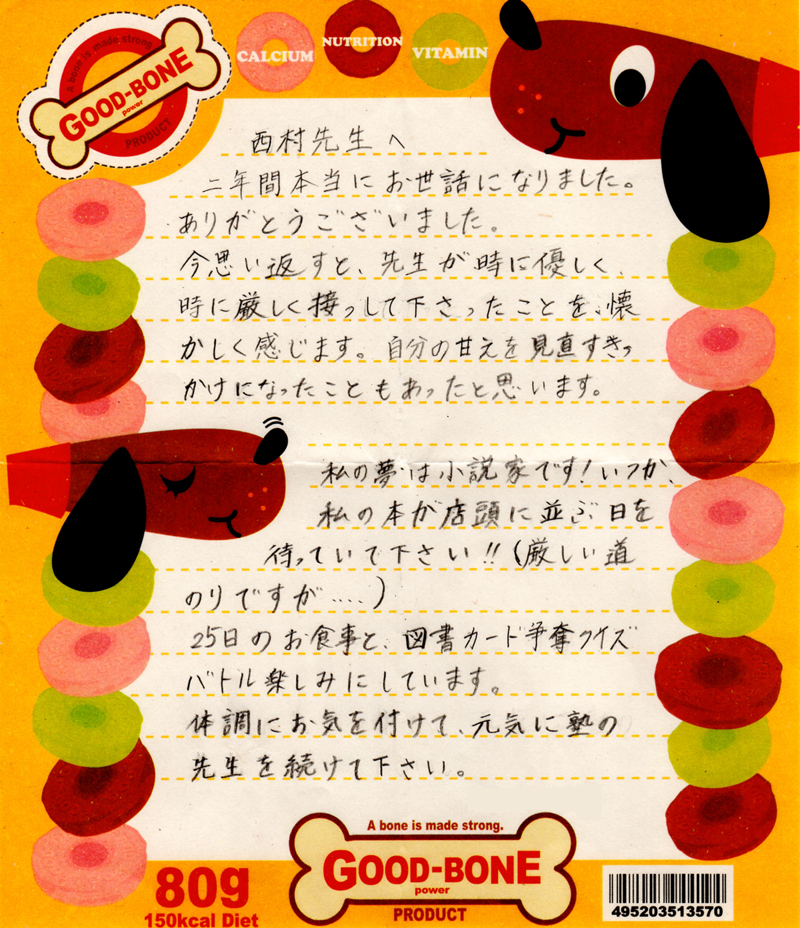 A bone is made strong.
GOOD-BONE
power
PRODUCT
CALCIUM
NUTRITION
VITAMIN
西村先生へ
二年間本当にお世話になりました。
ありがとうございました。
今思い返すと、先生が時に優しく、
時に厳しく接っして下さったことを、懐
かしく感じます。自分の甘えを見直すきっ
かけになったこともあったと思います。
私の夢は小説家です!いつか、
私の本が店頭に並ぶ日を
待っていて下さい!!(厳しい道
のりですが.....)
25日のお食事と、図書カード争奪クイズ
バトル楽しみにしています。
体調にお気を付けて、元気に塾の
先生を続けて下さい。
A bone is made strong.
GOOD-BONE
power
PRODUCT
80g
150kcal Diet
495203513570